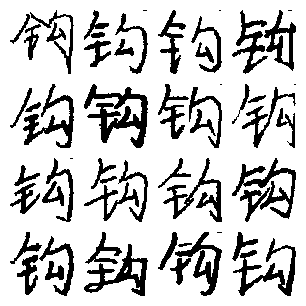 钩钩钩钩
钩钩钩钩
钩钩钩钩
钩钩钩钩